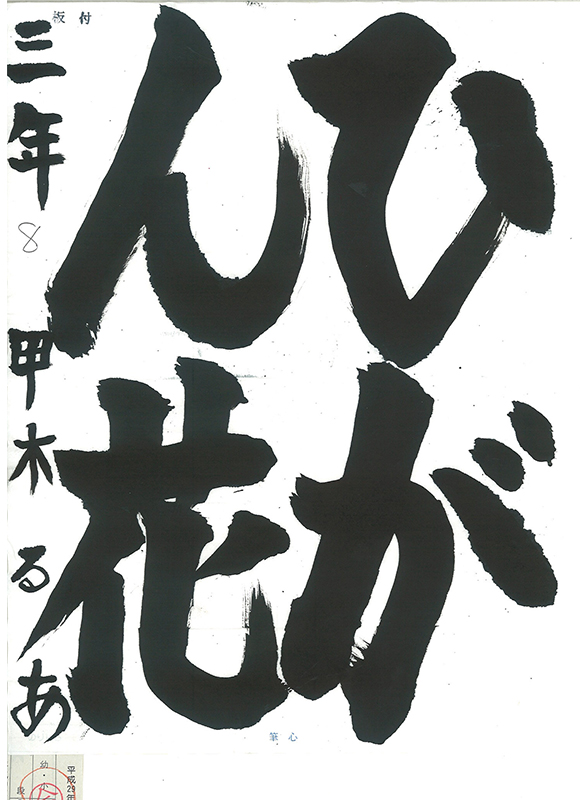 ひが
ん花
三年 8 甲木るあ
板付
筆心
平成29年
幼・
段